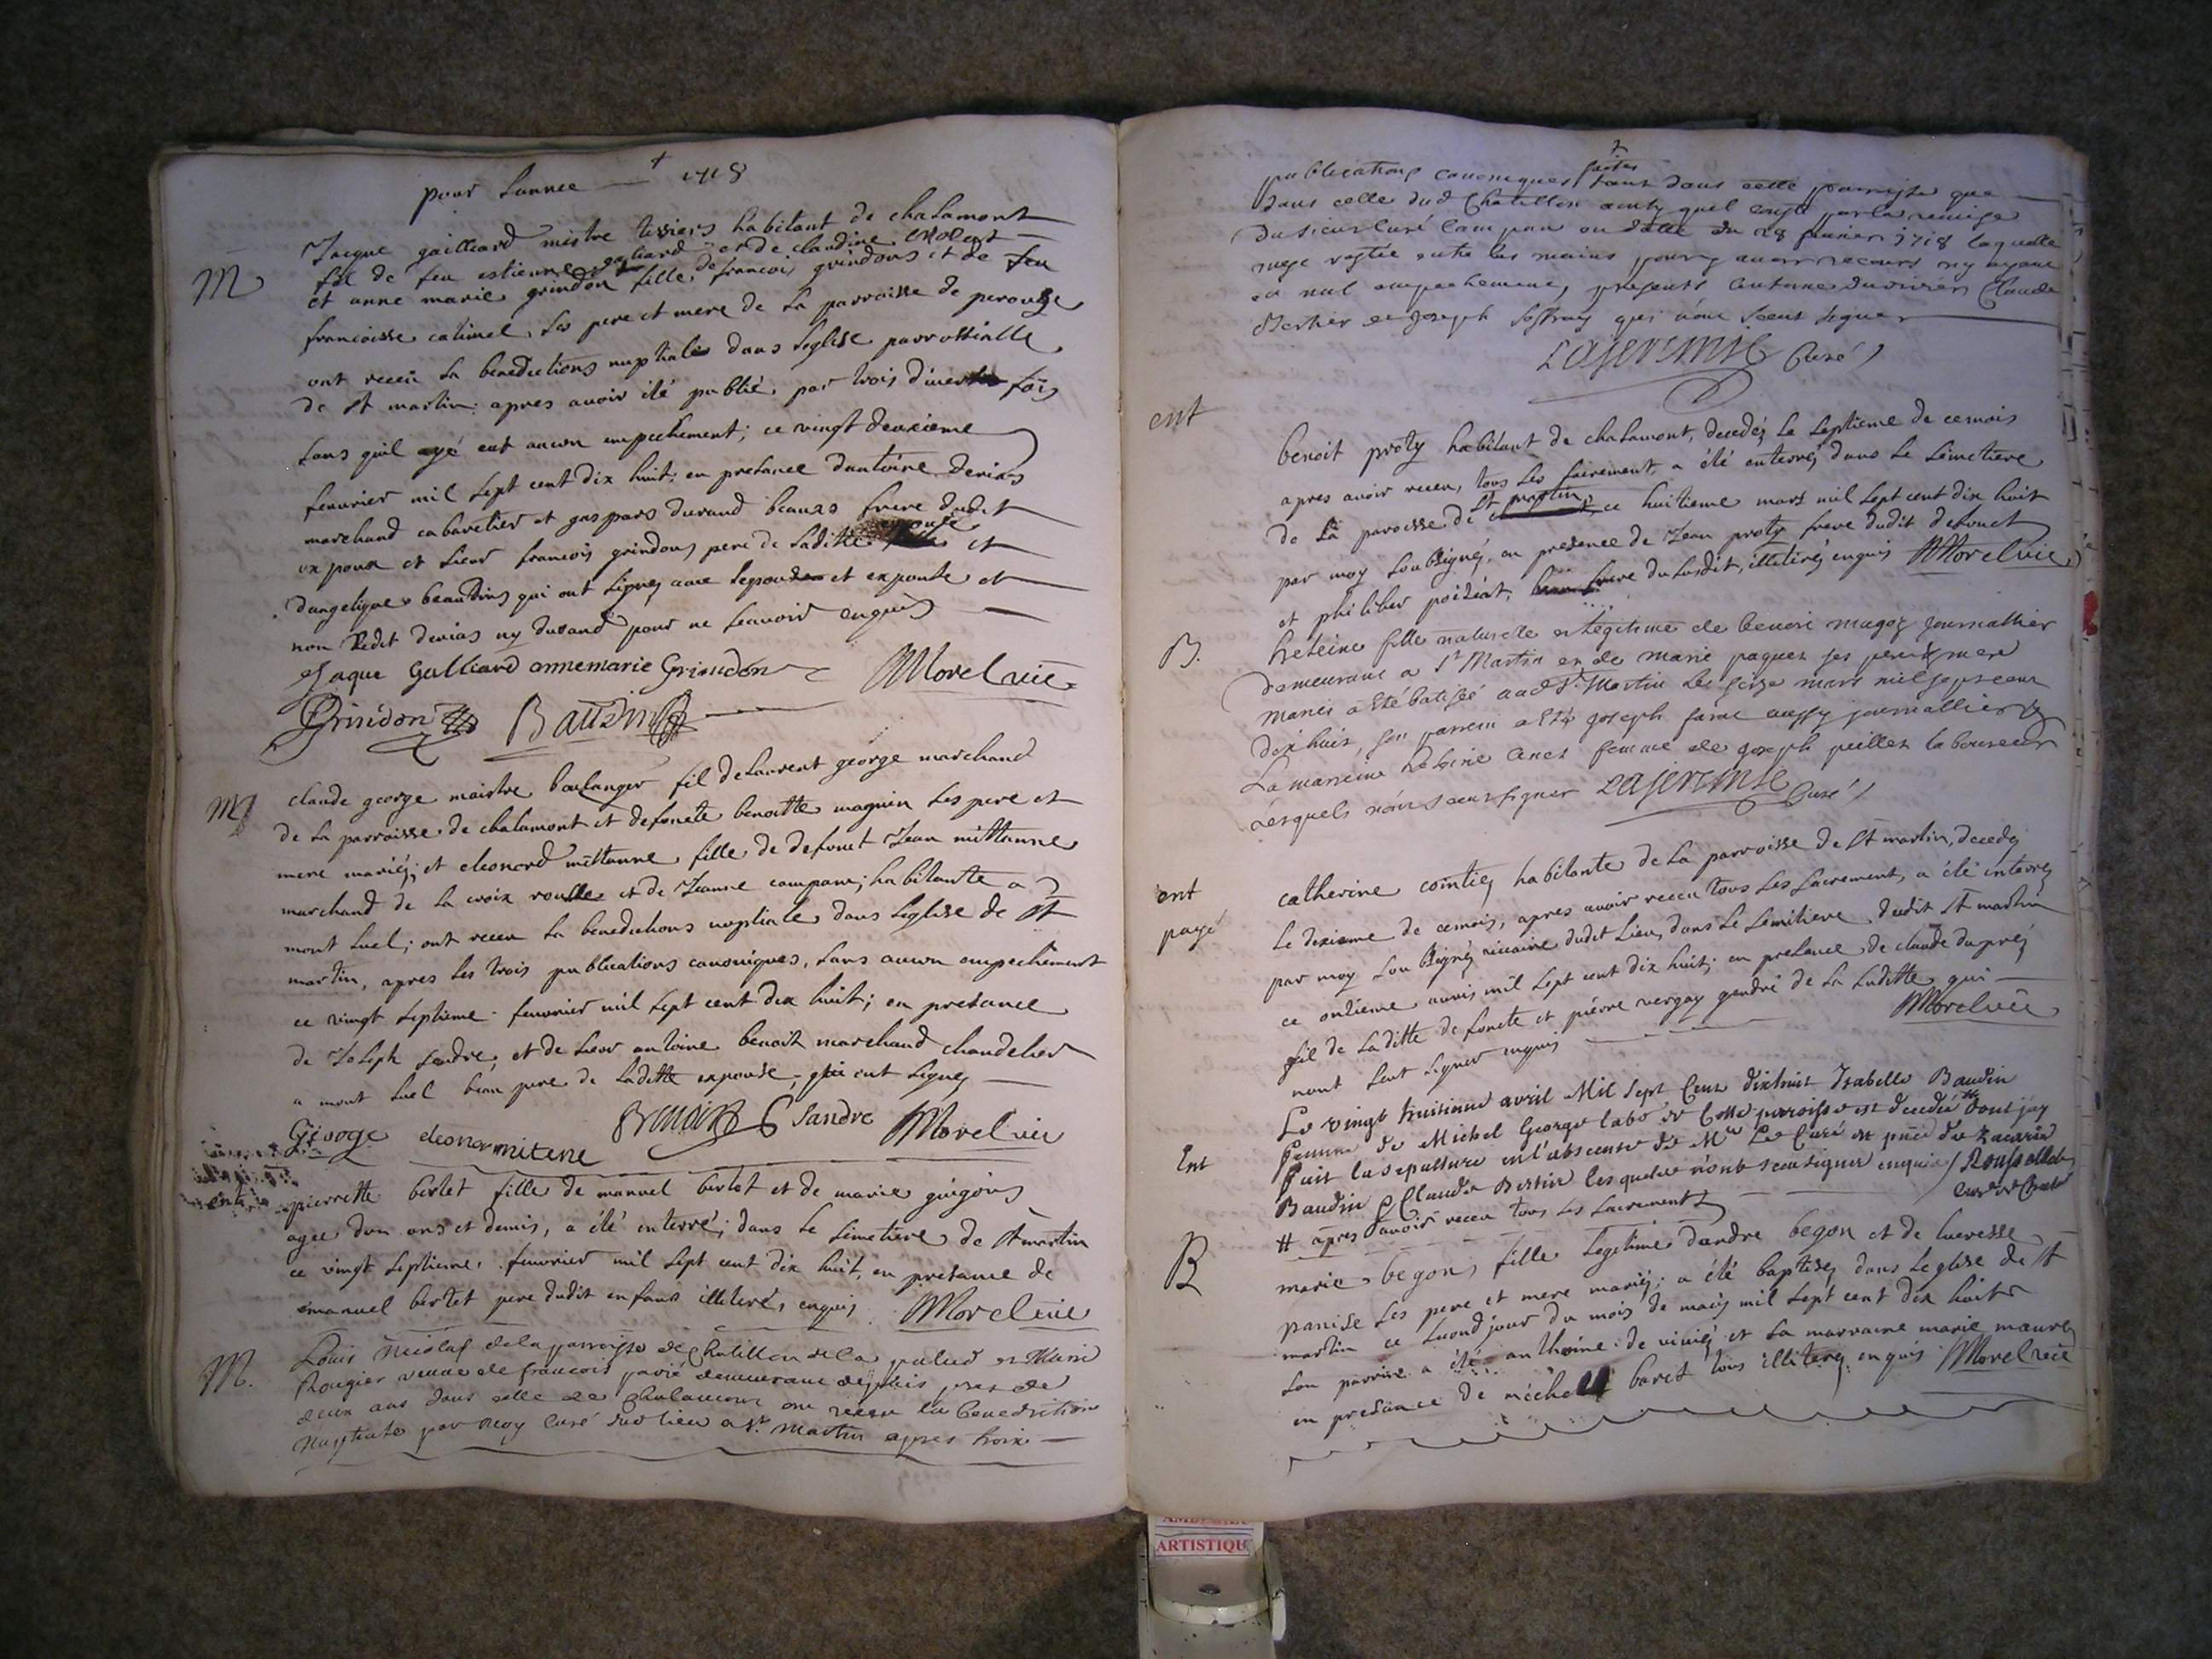 pour Lannee 1718
M
Jacque gailliard mistre tissiers habitant de chalamont
fil de feu estienne galiard et de claudine
et anne marie grindon fille de francois grindons et de feu
francoisse catimel ses pere et mere de La parroisse de perouge
ont receu La benedictions nuptiales dans Leglise parrossialle
de St martin apres avoir été publié par trois diverses fois
sans quil ayé eut aucun empechement; ce vingt deuxieme
feuvrier mil sept cent dix huit; en presance dantoine devias
marchand cabaretier et gaspars durand beaux frere dudit
expoux et sieur francois grindons pere de Laditte expouse et
dangelique beaudins qui ont signez avec Lepoux et expouse et
non Ledit devias ny durand pour ne scavoir enquis
Jaque Galliard annemarie Grindon Morel vic
Grindon Baudin
M
claude george maistre boulanger fil de Laurent george marchand
de La parroisse de chalamont et defuncte benoitte magnien ses pere et
mere mariéz; et eleonord mittanne fille de defunct Jean mittanne
marchand de La croix rousse et de Jeanne campane; habitante a
mont Luel; ont receu La benedictions nuptiale dans Leglise de St
martin, apres Les trois publications canoniques, sans aucun empechement
ce vingt septieme feuvrier mil sept cent dix huit; en presance
de Joseph sandre, et de sieur antoine benoit marchand chandelier
a mont Luel beau pere de Laditte expouse, qui ont signez
George eleonor mitene Benoit Sandre Morel vic
ent
pierrette berlet fille de manuel berlet et de marie guigons
agee dun ans et demis, a été enterré; dans Le simetiere de St martin
ce vingt septieme feuvrier mil sept cent dix huit, en presance de
emanuel berlet pere dudit enfans illiteré, enquis Morel vic
M.
Louis Nicolas de la parroisse de Chatillon de la palud et Marie
Rougier veuve de francois pavié demeurant depuis pres de
deux ans dans celle de Chalamont ont receu la benediction
Nuptiale par moy Curé dud lieu a St. Martin apres trois
publications canoniques faites tant dans cette parroisse que
dans celle dud Chatillon
du sieur Curé Campan en datte du 28 fevrier 1718 laquelle
reste entre les mains pour y avoir recours ny ayant
eu nul empechement, presents Antoine Duvivier Claude
Mertier et Joseph Joffray qui n'ont sceut signer
Lajersmie Curé
ent
benoit proty habitant de chalamont, decedéz Le septieme de cemois
apres avoir receu, tous Les sacrement, a été enterréz dans Le simetiere
de La paroisse de St martin, ce huitieme mars mil sept cent dix huit
par moy soubsignéz, en presence de Jean proty frere dudit defunct
et philiber poizat, du susdit, illitiréz enquis Morel vic
B.
heleine fille naturelle et legitime de benoit magoz journallier
demeurant a St Martin et de Marie paquet ses pere & mere
Mariés a Eté batisée aud St Martin Le seize mars mil sept cent
dix huit, son parrein a Eté Joseph farat aussy journallier &
La marreine heleine Anet femme de Joseph peillet laboureur
Lesquels n'ont sceut signer Lajersmie Curé
ent
payé
catherine cointiez habitante de La parroisse de St martin, decedéz
Le dixieme de cemois, apres avoir receu tous Les sacrement, a été enterréz
par moy soubsignéz vicaire dudit Lieu, dans Le simitiere dudit St martin
ce onzieme avris mil sept cent dix huit; en presance de claude dupréz
fil de Laditte defuncte et pierre vergay gendre de La susditte qui
nont seut signer enquis Morel vic
Ent
Le vingt huitieme avril Mil sept Cent dixhuit Isabelle Baudin
femme de Michel George labo de Cette paroisse est decedée # dont jay
fait la sepulture en l'abscense de Mre Le Curé en pnce de Zacarie
Baudin & Claude Bertier lesquels n'ont sceu signer enquis / Rousellet
# apres avoir receu tous Les sacrements Curé de Chatel
B
marie begon, fille Legitime dandre begon et de Lucresse
panise Les pere et mere mariéz; a été baptiséz dans Leglise de St
martin ce second jour du mois de mais mil sept cent dix huit
son parrin a été anthoine de viviéz et La marraine marie maurez
en presance de michel baret tous illiterez enquis Morel vic